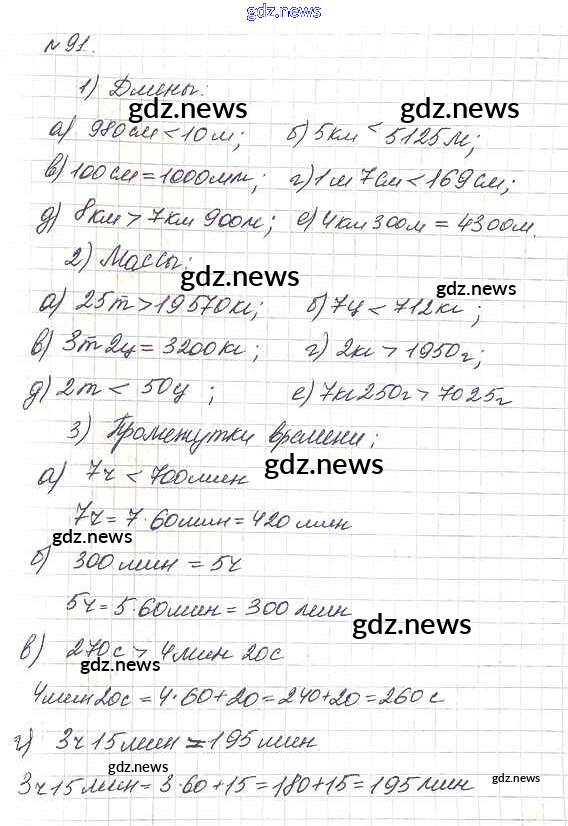 gdz.news
№91.
1) Длины:
gdz.news gdz.news
а) 980см < 10м; б) 5км < 5125м;
в) 100см = 1000мм; г) 1м 7см < 169см;
д) 8км > 7км 900м; е) 4км 300м = 4300м.
2) Массы:
gdz.news gdz.news
а) 25т > 19570кг; б) 7ц < 712кг;
в) 3т 2ц = 3200кг; г) 2кг > 1950г;
д) 2т < 50ц; е) 7кг 250г > 7025г
3) Промежутки времени;
gdz.news
а) 7ч < 700мин
7ч = 7·60мин = 420мин
gdz.news
б) 300мин = 5ч
5ч = 5·60мин = 300мин
gdz.news
в) 270с > 4мин 20с
gdz.news
4мин 20с = 4·60+20 = 240+20 = 260с
г) 3ч 15мин = 195мин
gdz.news gdz.news
3ч 15мин = 3·60+15 = 180+15 = 195мин